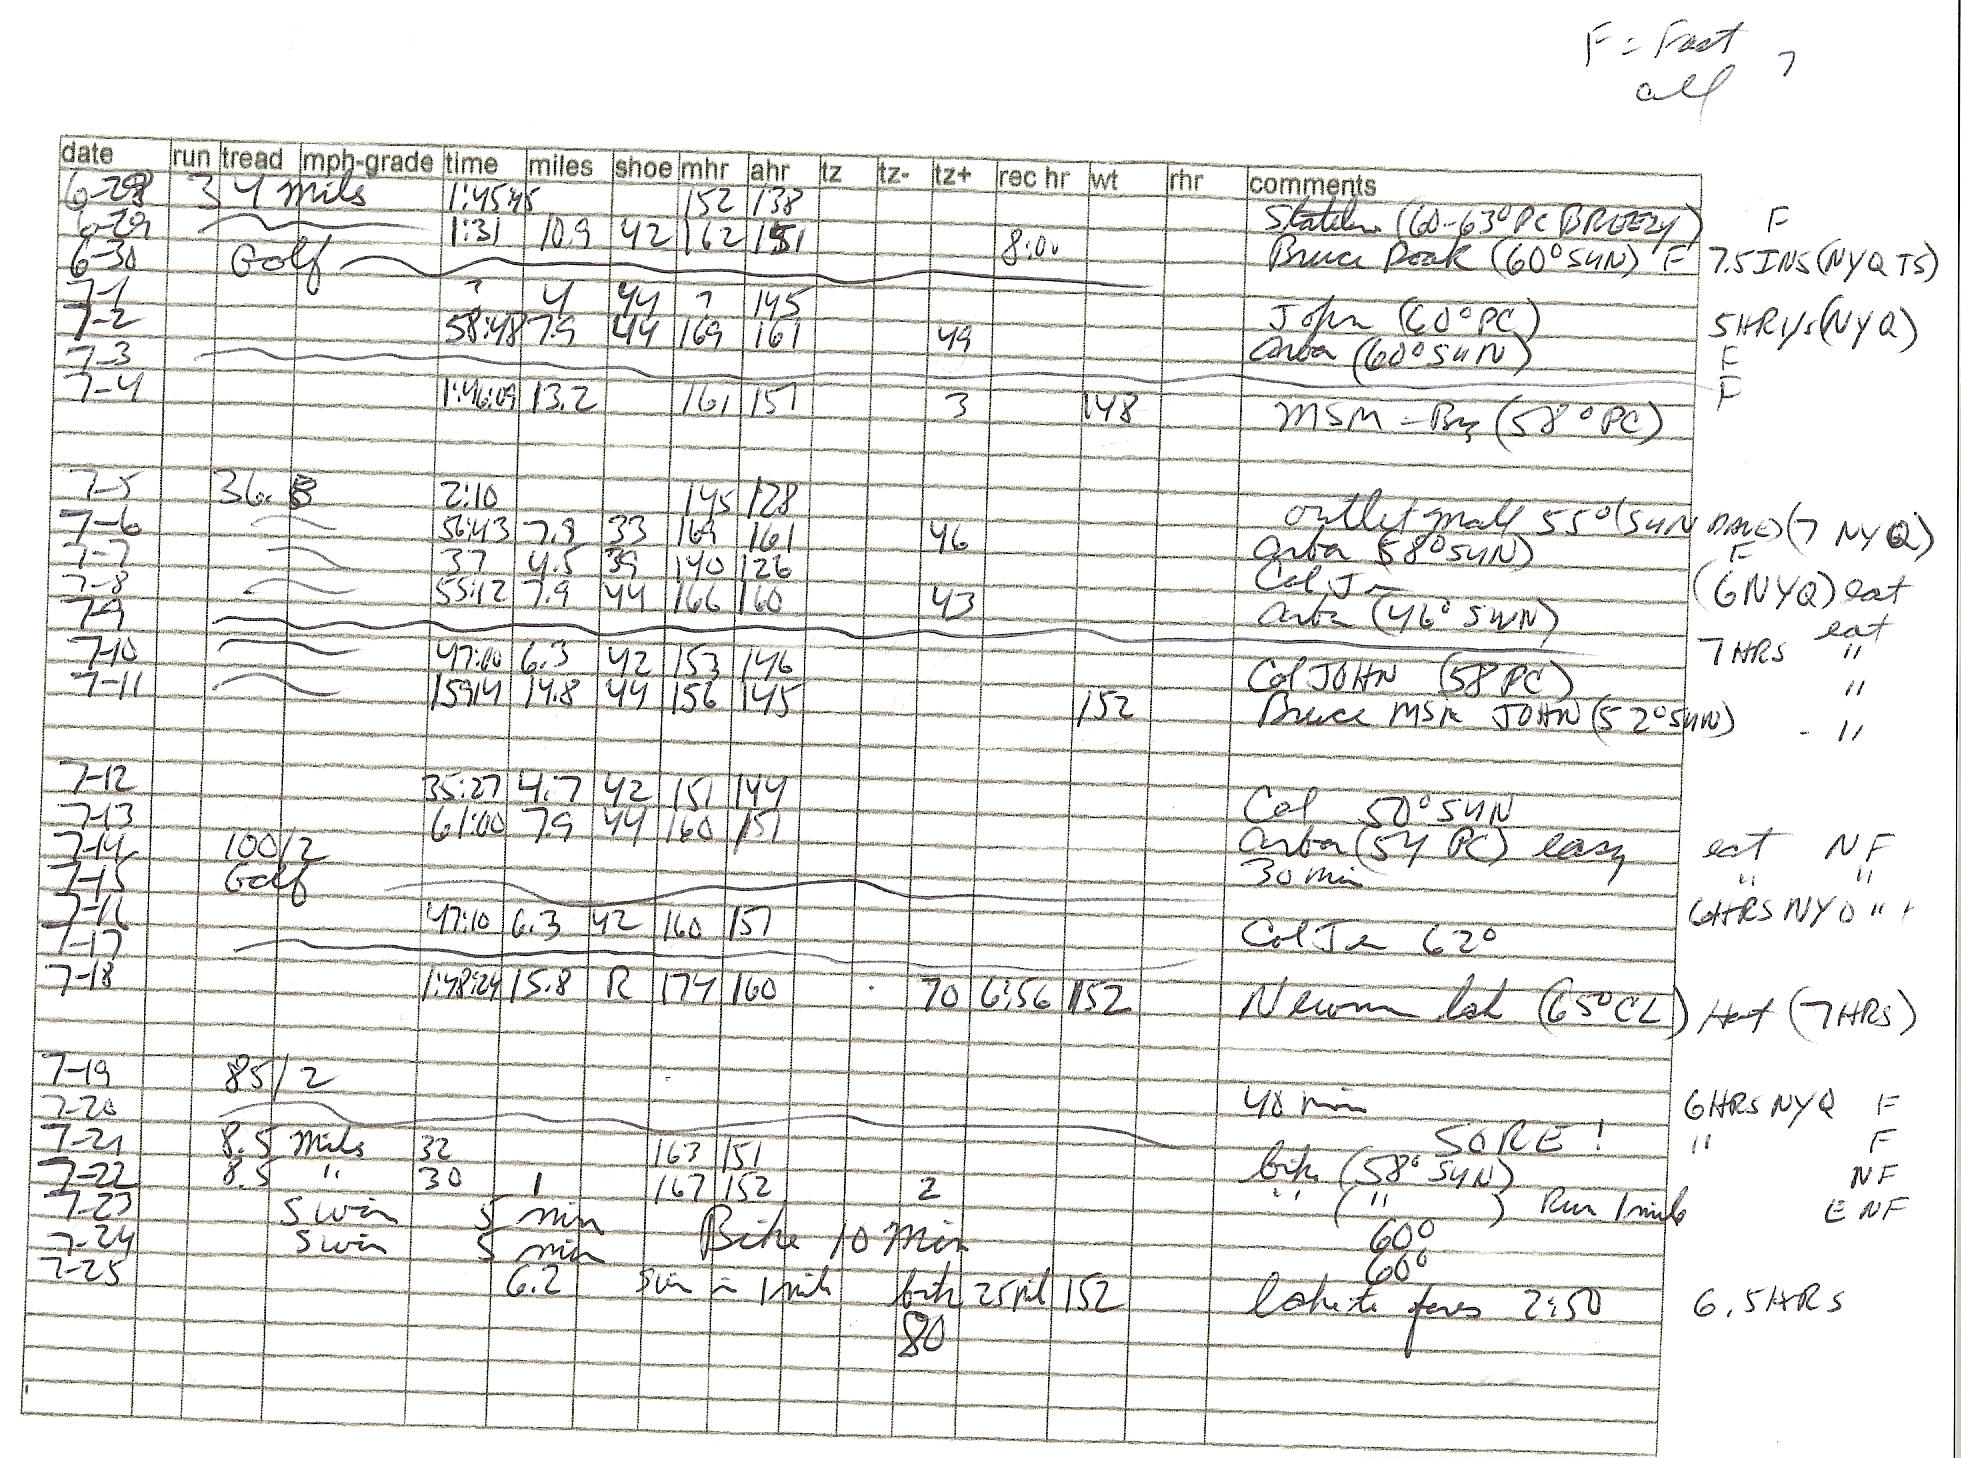 F = Fast ?
all
date run tread mph-grade time miles shoe mhr ahr tz tz- tz+ rec hr wt rhr comments
6-28 34 miles 1:45:45 152 138 (60-63° PC BREEZY) F
6-29 1:31 10.9 42 162 151 8:00 Bruce (60° SUN) F 7.5 (NYQ TS)
6-30 Golf
7-1 ? 4 44 ? 145 John (60° PC) 5HRS (NYQ)
7-2 58:48 7.9 44 169 161 49 (60° SUN) F
7-3 F
7-4 1:46:09 13.2 161 151 3 148 MSM - (58° PC)
7-5 36. 2:10 145 128 outlet mall 55° (SUN DAVE) (7 NYQ)
7-6 56:43 7.9 33 169 161 46 58° SUN) F
7-7 37 4.5 39 140 126 Col (6 NYQ) eat
7-8 55:12 7.9 44 166 160 43 (46° SUN) eat
7-9 7 HRS "
7-10 47:00 6.3 42 153 146 Col JOHN (58 PC) "
7-11 15914 14.8 44 156 145 152 Bruce MSM JOHN (52° SUN) "
7-12 35:27 4.7 42 151 144 Col 50° SUN
7-13 61:00 7.9 44 160 151 (54 PC) easy eat NF
7-14 100/2 30 min " "
7-15 Golf 6HRS NYQ " "
7-16 47:10 6.3 42 160 151 Col 62°
7-17
7-18 1:48:24 15.8 R 174 160 70 6:56 152 (65° CL) (7HRS)
7-19 85/2 40 min 6HRS NYQ F
7-20 SORE ! " F
7-21 8.5 miles 32 163 151 bike (58° SUN) NF
7-22 8.5 " 30 1 167 152 2 " (" ) Run 1 mile E NF
7-23 Swim 5 min Bike 10 Min 60°
7-24 Swim 5 min 60°
7-25 6.2 1 mile bike 25 152 2:50 6.5HRS
80